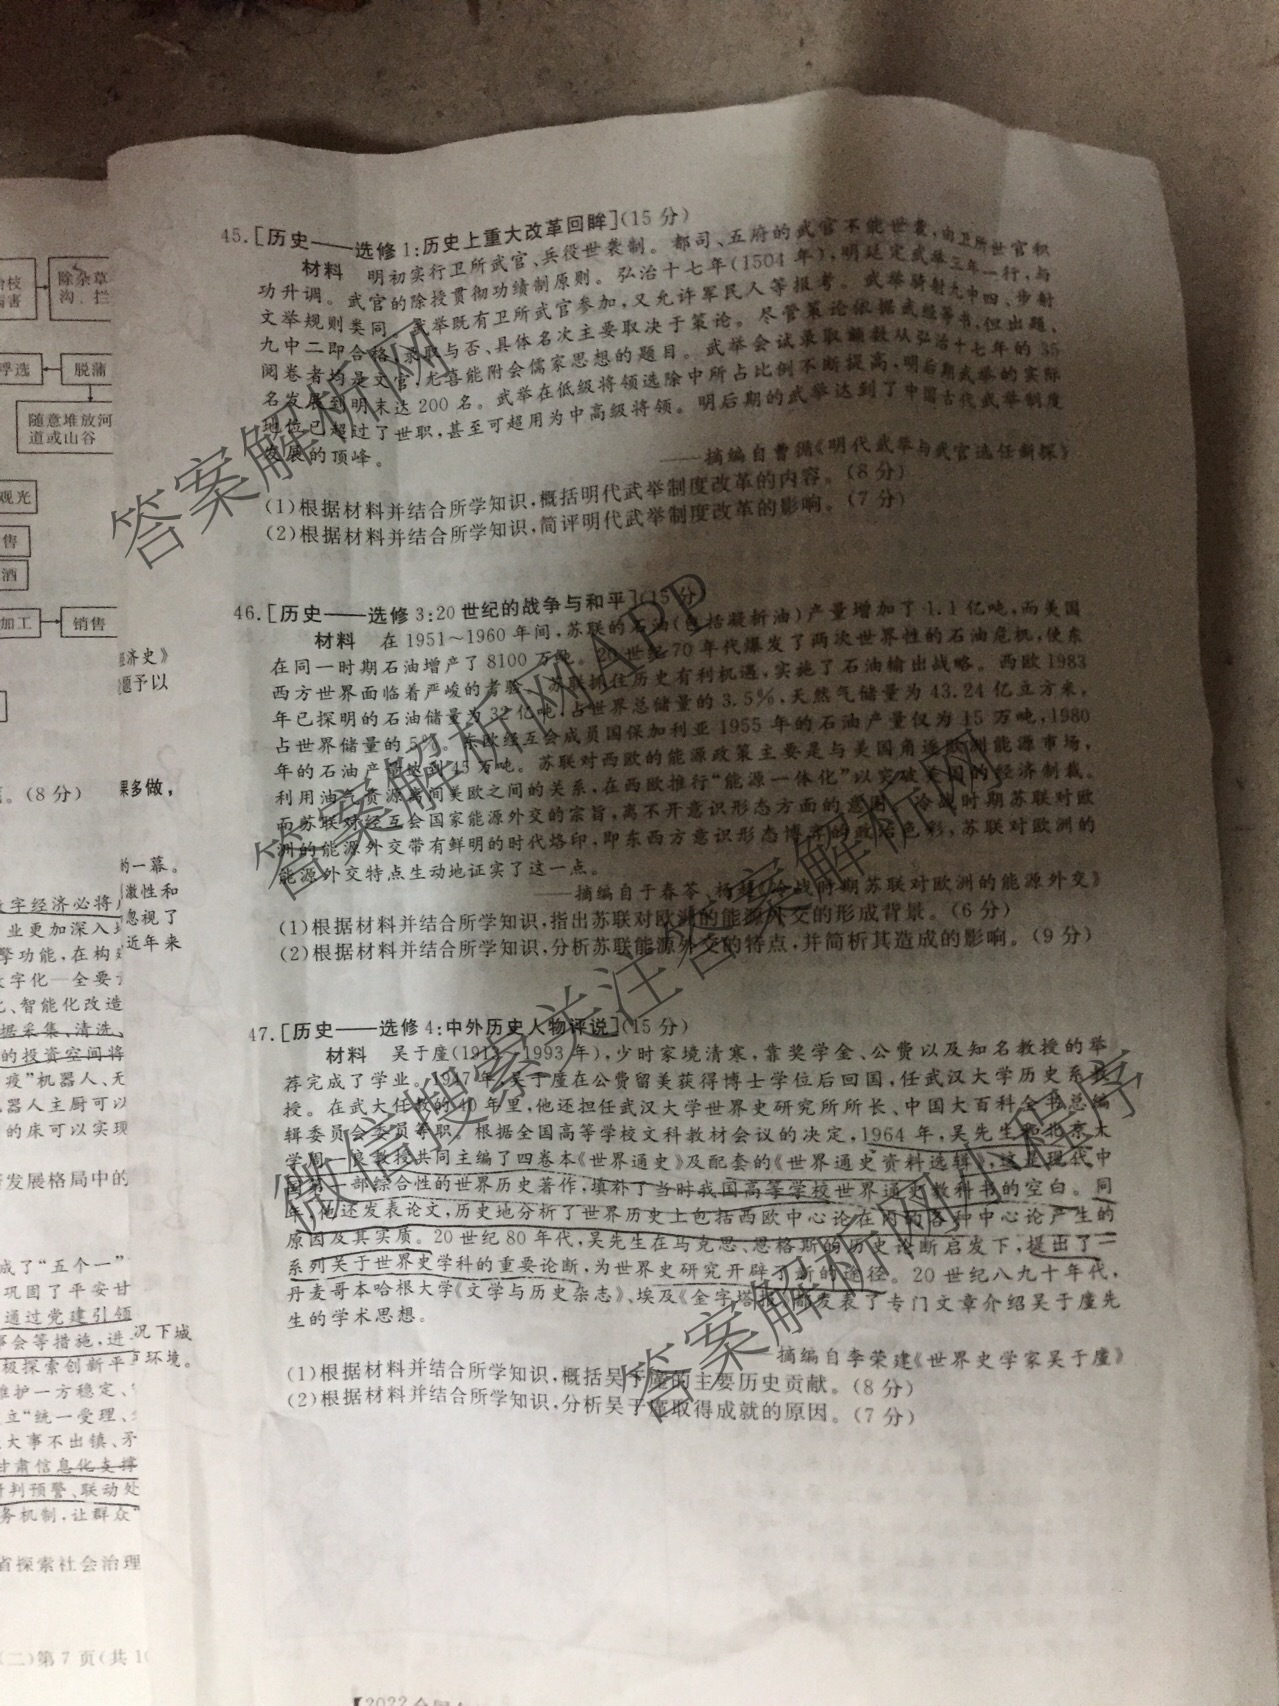 45.[历史——选修1:历史上重大改革回眸](15分)
材料 明初实行卫所武官、兵役世袭制。都司、五府的武官不能世袭,由卫所世官积
功升调。武官的除授贯彻功绩制原则。弘治十七年(1504年),明廷定武举三年一行,与
文举规则类同。武举既有卫所武官参加,又允许军民人等报考。武举骑射九中四、步射
九中二即合格,录取与否、具体名次主要取决于策论。尽管策论依据武经等书,但出题、
阅卷者均是文官,尤喜能附会儒家思想的题目。武举会试录取额数从弘治十七年的35
名发展到明末达200名。武举在低级将领选除中所占比例不断提高,明后期武举的实际
地位已超过了世职,甚至可超用为中高级将领。明后期的武举达到了中国古代武举制度
发展的顶峰。
——摘编自曹循《明代武举与武官选任新探》
(1)根据材料并结合所学知识,概括明代武举制度改革的内容。(8分)
(2)根据材料并结合所学知识,简评明代武举制度改革的影响。(7分)
46.[历史——选修3:20世纪的战争与和平](15分)
材料 在1951~1960年间,苏联的石油(包括凝析油)产量增加了1.1亿吨,而美国
在同一时期石油增产了8100万吨。20世纪70年代爆发了两次世界性的石油危机,使东
西方世界面临着严峻的考验。苏联抓住历史有利机遇,实施了石油输出战略。西欧1983
年已探明的石油储量为32亿吨,占世界总储量的3.5%,天然气储量为43.24亿立方米,
占世界储量的5%。东欧经互会成员国保加利亚1955年的石油产量仅为15万吨,1980
年的石油产量达到45万吨。苏联对西欧的能源政策主要是与美国角逐欧洲能源市场,
利用油气资源离间美欧之间的关系,在西欧推行“能源一体化”以突破美国的经济制裁。
而苏联对经互会国家能源外交的宗旨,离不开意识形态方面的意图。冷战时期苏联对欧
洲的能源外交带有鲜明的时代烙印,即东西方意识形态博弈的政治色彩,苏联对欧洲的
能源外交特点生动地证实了这一点。
——摘编自于春苓、杨 《冷战时期苏联对欧洲的能源外交》
(1)根据材料并结合所学知识,指出苏联对欧洲的能源外交的形成背景。(6分)
(2)根据材料并结合所学知识,分析苏联能源外交的特点,并简析其造成的影响。(9分)
47.[历史——选修4:中外历史人物评说](15分)
材料 吴于廑(1913~1993年),少时家境清寒,靠奖学金、公费以及知名教授的举
荐完成了学业。1947年,吴于廑在公费留美获得博士学位后回国,任武汉大学历史系教
授。在武大任教的40年里,他还担任武汉大学世界史研究所所长、中国大百科全书总编
辑委员会委员等职。根据全国高等学校文科教材会议的决定,1964年,吴先生和北京大
学周一良教授共同主编了四卷本《世界通史》及配套的《世界通史资料选辑》,这是现代中
国第一部综合性的世界历史著作,填补了当时我国高等学校世界通史教科书的空白。同
年,他还发表论文,历史地分析了世界历史上包括西欧中心论在内的各种中心论产生的
原因及其实质。20世纪80年代,吴先生在马克思、恩格斯的历史论断启发下,提出了一
系列关于世界史学科的重要论断,为世界史研究开辟了新的途径。20世纪八九十年代,
丹麦哥本哈根大学《文学与历史杂志》、埃及《金字塔报》都发表了专门文章介绍吴于廑先
生的学术思想。
——摘编自李荣建《世界史学家吴于廑》
(1)根据材料并结合所学知识,概括吴于廑的主要历史贡献。(8分)
(2)根据材料并结合所学知识,分析吴于廑取得成就的原因。(7分)
除杂草
沟、拦
浮选
脱蒲
随意堆放河
道或山谷
观光
售
酒
加工
销售
经济史》
题予以
。(8分)
课多做,
的一幕。
激性和
忽视了
近年来
数字经济必将
业更加深入
擎功能,在构
数字化—全要
化、智能化改造
据采集、清洗、
的投资空间将
疫”机器人、无
机器人主厨可以
的床可以实现
发展格局中的
成了“五个一”
巩固了平安甘
通过党建引领
事会等措施,进
极探索创新平
况下城
环境。
维护一方稳定、
立“统一受理、
大事不出镇、矛
甘肃信息化支撑
研判预警、联动处
务机制,让群众
省探索社会治理
(二)第7页(共1
【2022
答案解析网
答案解析网APP
微信搜索关注答案解析网
答案解析网小程序